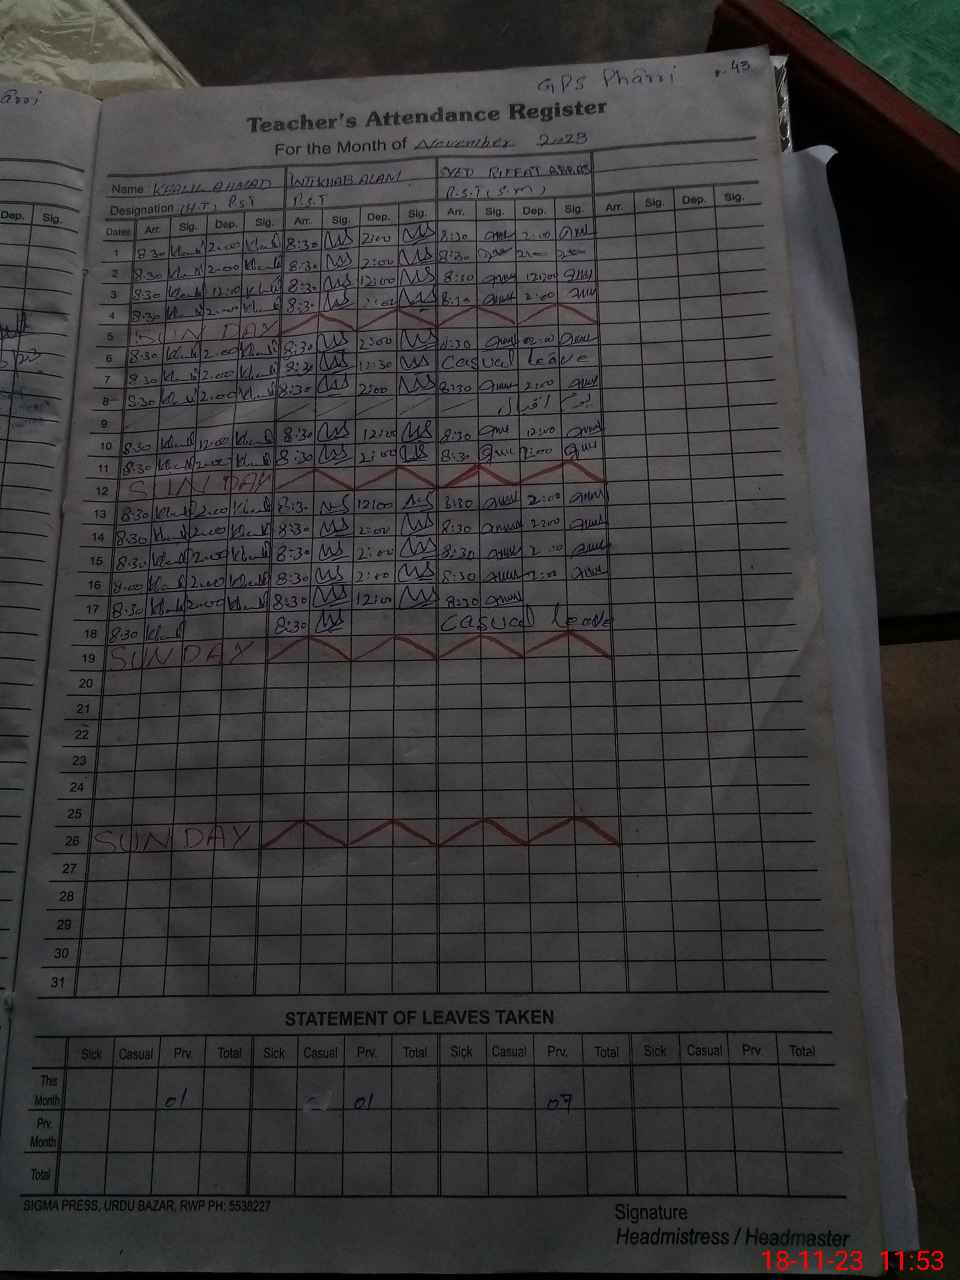 GPS Pharri P. 43
Teacher's Attendance Register
For the Month of November 2023
Name: KHALIL AHMAD INTIKHAB ALAM SYED RIFFAT ABBAS
Designation (H.T) P.S.T P.S.T P.S.T (S.M)
Dep. Sig.
Dates Arr. Sig. Dep. Sig. Arr. Sig. Dep. Sig. Arr. Sig. Dep. Sig. Arr. Sig. Dep. Sig.
1 8:30 2:00 8:30 2:00 8:30 2:00
2 8:30 2:00 8:30 2:00 8:30 2:00
3 8:30 12:00 8:30 12:00 8:30 12:00
4 8:30 2:00 8:30 2:00 8:30 2:00
5 SUNDAY
6 8:30 2:00 8:30 2:00 8:30 2:00
7 8:30 2:00 8:30 12:30 Casual Leave
8 8:30 2:00 8:30 2:00 8:30 2:00
9 اقبال
10 8:30 12:00 8:30 12:00 8:30 12:00
11 8:30 2:00 8:30 2:00 8:30 2:00
12 SUNDAY
13 8:30 2:00 8:30 12:00 8:30 2:00
14 8:30 2:00 8:30 2:00 8:30 2:00
15 8:30 2:00 8:30 2:00 8:30 2:00
16 8:00 2:00 8:30 2:00 8:30 2:00
17 8:30 2:00 8:30 12:00 8:30
18 8:30 8:30 Casual Leave
19 SUNDAY
20
21
22
23
24
25
26 SUNDAY
27
28
29
30
31
STATEMENT OF LEAVES TAKEN
Sick Casual Prv. Total Sick Casual Prv. Total Sick Casual Prv. Total Sick Casual Prv. Total
This Month 01 01 07
Prv. Month
Total
SIGMA PRESS, URDU BAZAR, RWP PH: 5530227
Signature
Headmistress / Headmaster
18-11-23 11:53